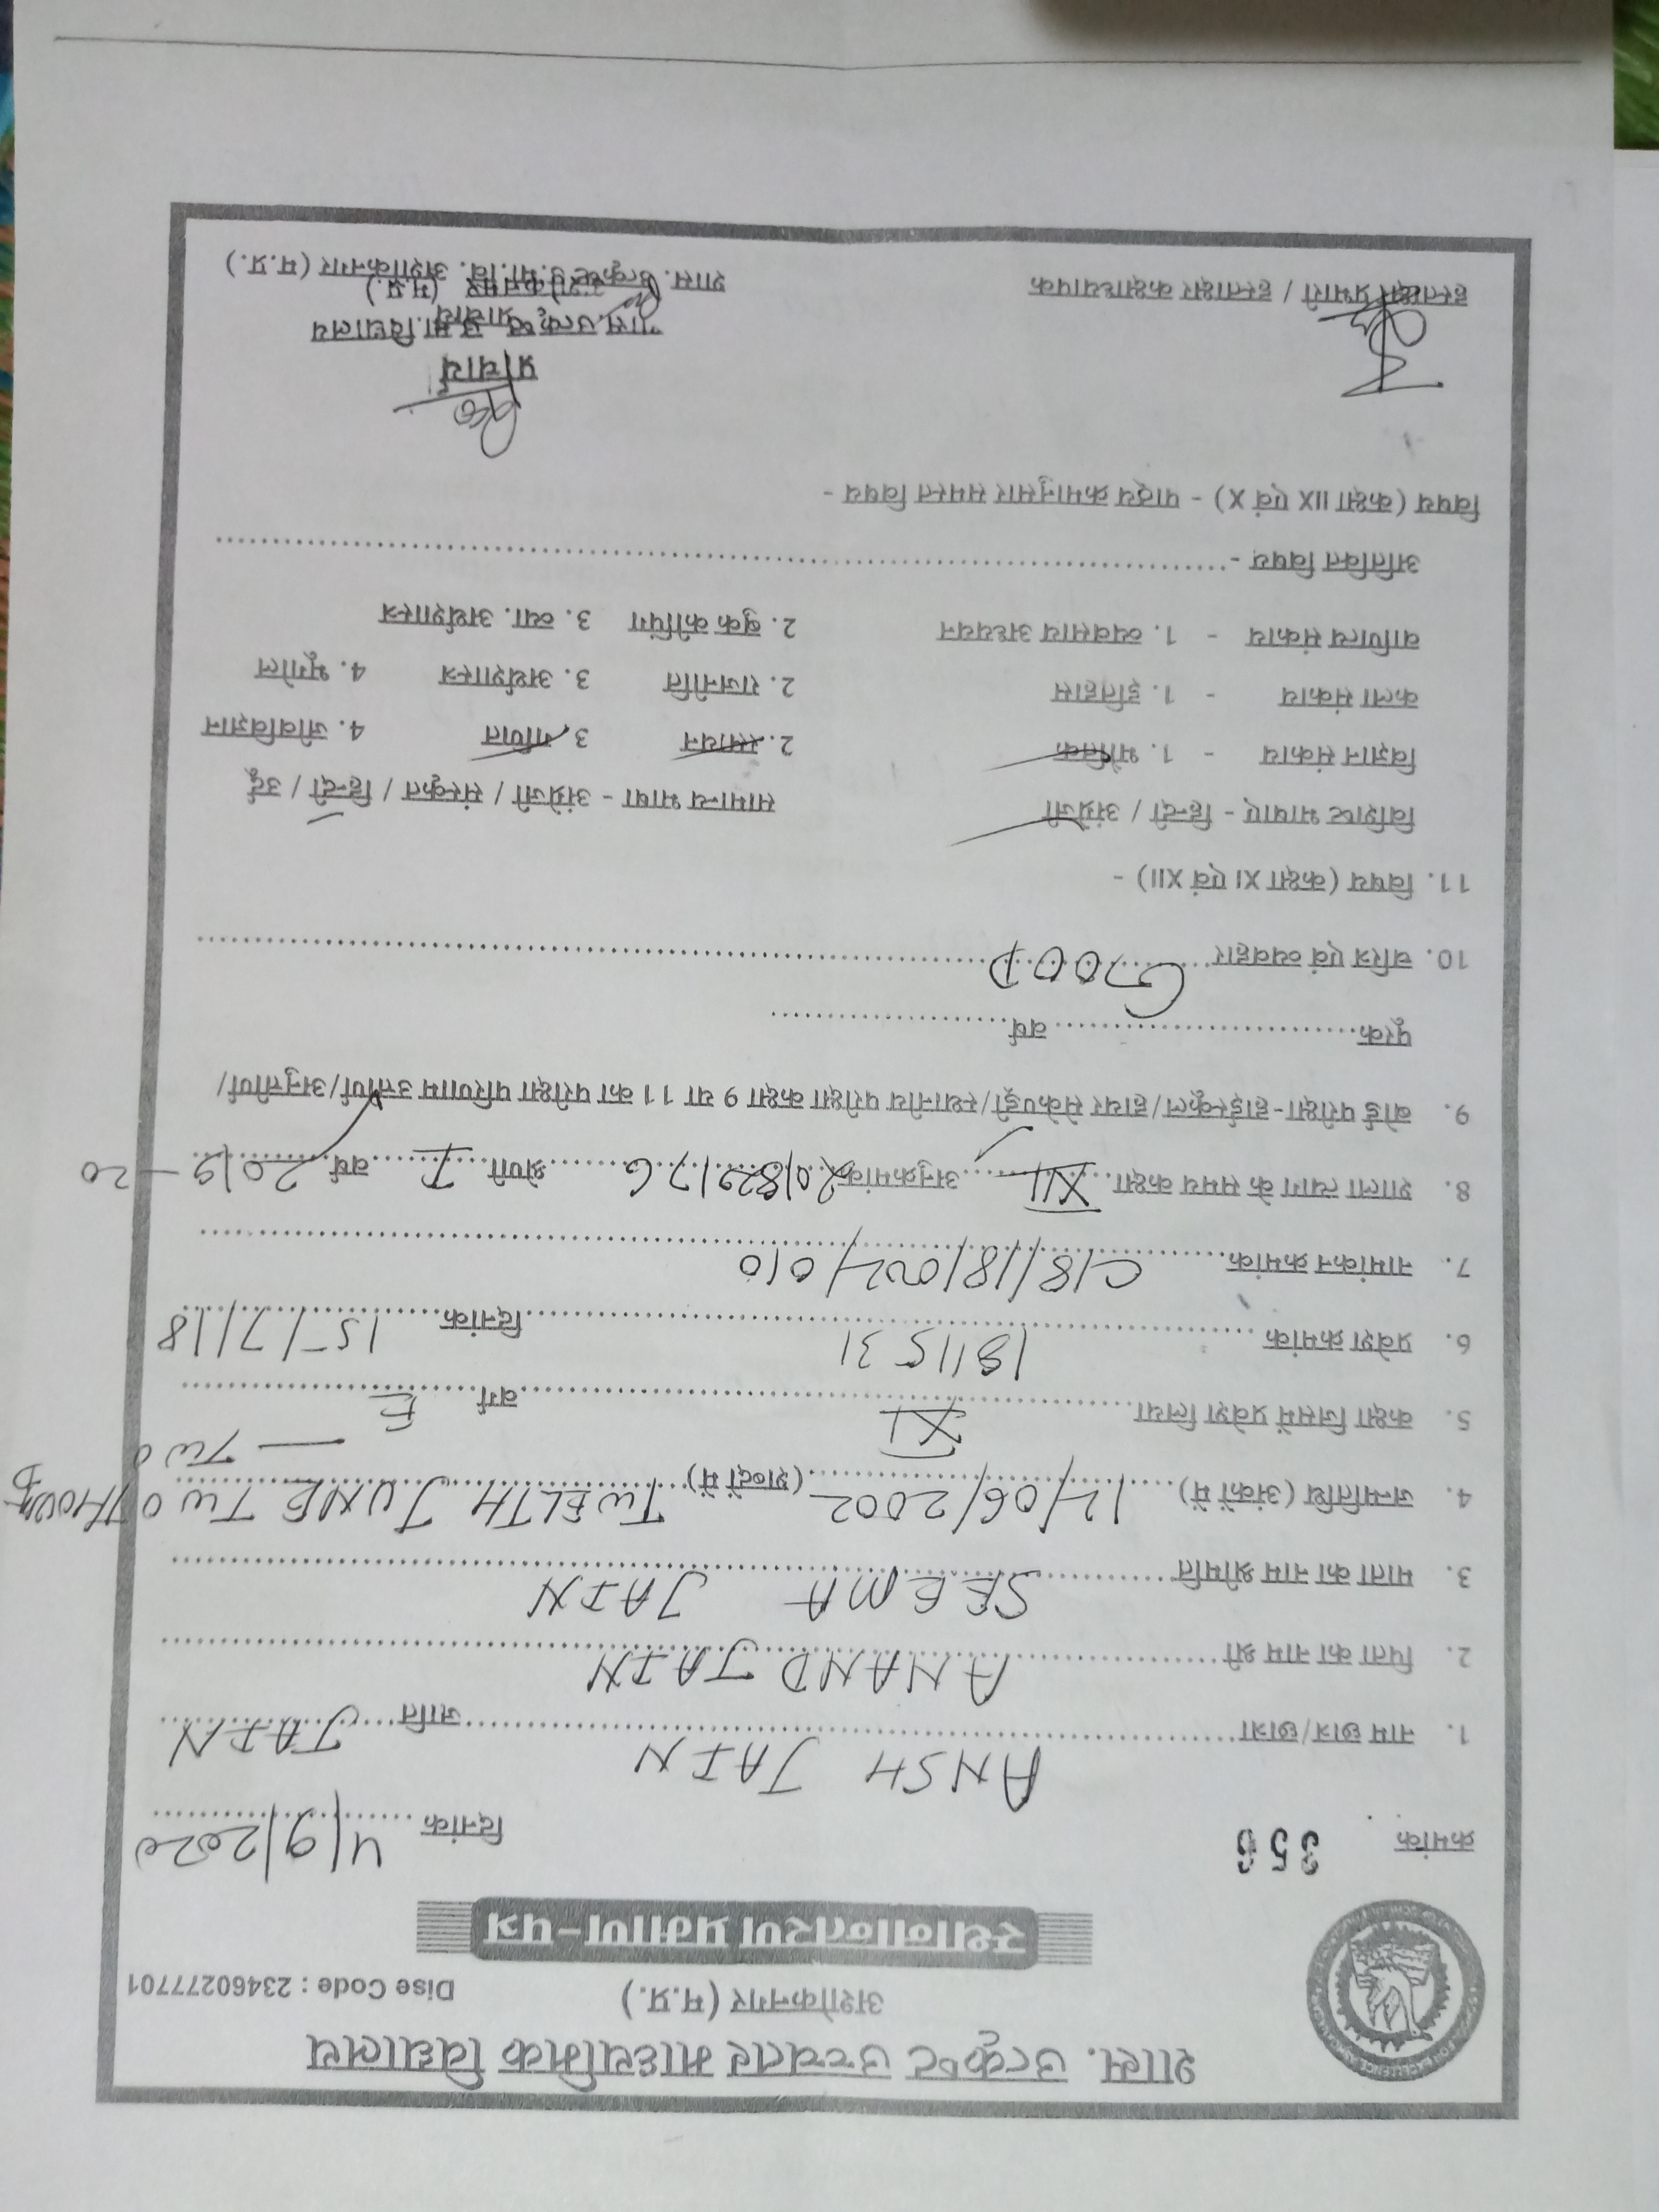 शास. उत्कृष्ट उच्चतर माध्यमिक विद्यालय
अशोकनगर (म.प्र.)
Dise Code : 23460277701
स्थानान्तरण प्रमाण-पत्र
क्रमांक 356 दिनांक 4/9/2020
1. नाम छात्र/छात्रा ANSH JAIN जाति JAIN
2. पिता का नाम श्री ANAND JAIN
3. माता का नाम श्रीमति SEEMA JAIN
4. जन्मतिथि (अंकों में) 12/06/2002 (शब्दों में) TWELTH JUNE TWO THOUS
— TWO
5. कक्षा जिसमें प्रवेश लिया XI वर्ग E
6. प्रवेश क्रमांक 1811531 दिनांक 15/7/18
7. नामांकन क्रमांक
8. शाला त्याग के समय कक्षा XII अनुक्रमांक 201829176 श्रेणी I वर्ष 2019-20
9. बोर्ड परीक्षा-हाईस्कूल/हायर सेकेण्ड्री/स्थानीय परीक्षा कक्षा 9 या 11 का परीक्षा परिणाम उत्तीर्ण/अनुत्तीर्ण/
पूरक वर्ष
10. चरित्र एवं व्यवहार GOOD
11. विषय (कक्षा XI एवं XII) -
विशिष्ट भाषाए - हिन्दी / अंग्रेजी सामान्य भाषा - अंग्रेजी / संस्कृत / हिन्दी / उर्दू
विज्ञान संकाय - 1. भौतिक 2. रसायन 3. गणित 4. जीवविज्ञान
कला संकाय - 1. इतिहास 2. राजनीति 3. अर्थशास्त्र 4. भूगोल
वाणिज्य संकाय - 1. व्यवसाय अध्ययन 2. बुक कीपिंग 3. व्या. अर्थशास्त्र
अतिक्ति विषय -
विषय (कक्षा IIX एवं X) - पाठ्य क्रमानुसार समस्त विषय -
प्राचार्य
शास. उत्कृष्ट उ.मा. विद्यालय
प्राचार्य
अशोकनगर (म.प्र.)
हस्ताक्षर प्रभारी / हस्ताक्षर कक्षाध्यापक शास. उत्कृष्ट उ.मा.वि. अशोकनगर (म.प्र.)